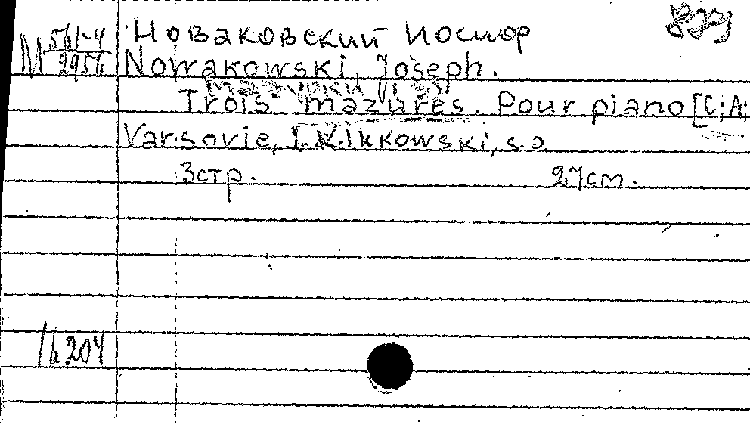 М 561-4
2956
Новаковский Иосиф
Nowakowski, Joseph.
Trois mazures. Pour piano [C; A;
Varsovie, I. Klukowski, s.a.
3стр. 27cm.
16204